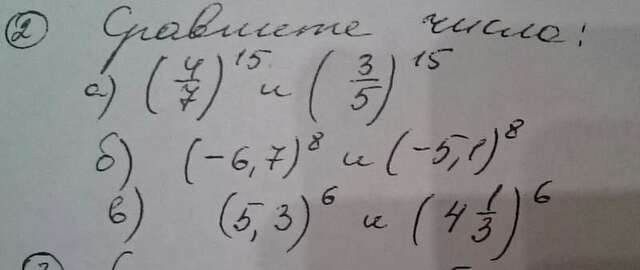 ② Сравните числа:
а) (4/7)^15 и (3/5)^15
б) (-6,7)^8 и (-5,1)^8
в) (5,3)^6 и (4 1/3)^6